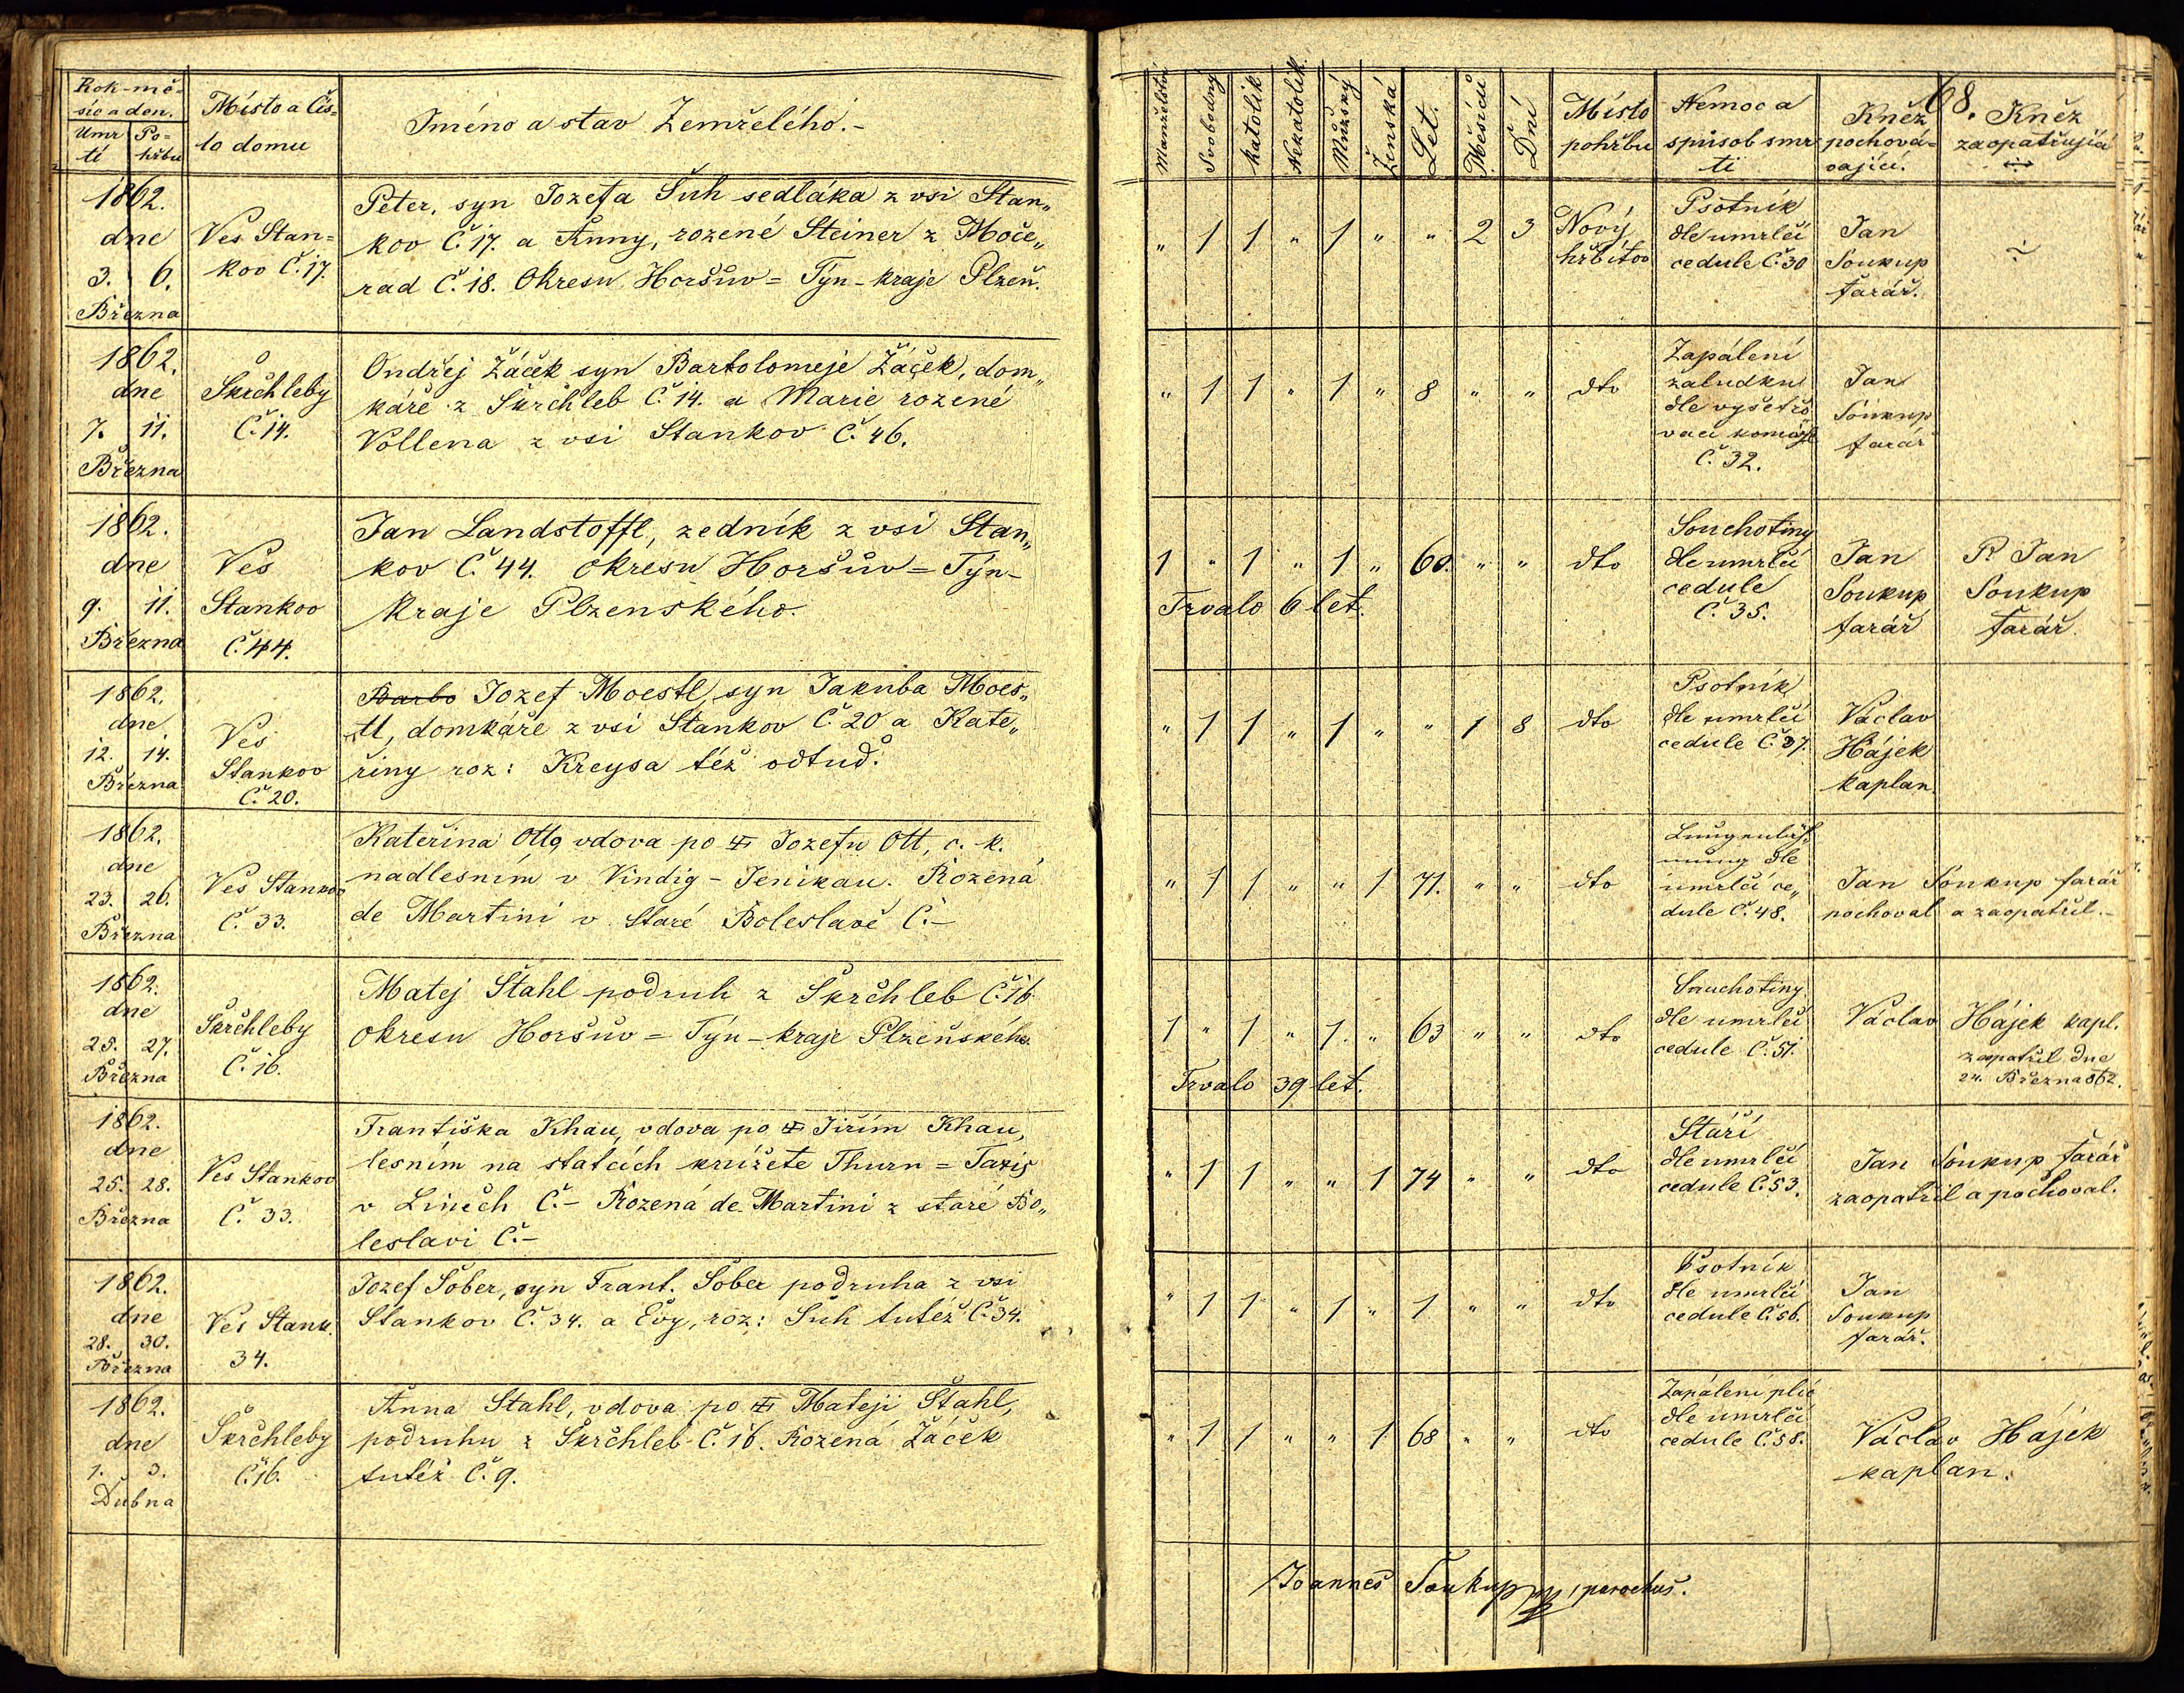 Rok-mě-
síc a den.
Umr-
tí
Po-
hřbu
Místo a Čís-
lo domu
Iméno a stav Zemřelého.-
1862.
dne
3. 6.
Března
Ves Stan=
kov Č. 17.
Peter, syn Jozefa Šuh sedláka z vsi Stan„
kov Č. 17. a Anny, rozené Steiner z Moče„
rad Č. 18. Okresu Horšuv= Týn-kraje Plzeň.
1862.
dne
7. 11.
Března
Skrchleby
Č. 14.
Ondřej Žáček syn Bartolomeje Žáček, dom„
káře z Skrchleb Č. 14. a Marie rozené
Vollena z vsi Stankov Č. 46.
1862.
dne
9. 11.
Března
Ves
Stankov
Č. 44.
Jan Landstoffl, zedník z vsi Stan„
kov Č. 44. okresu Horšuv= Týn-
kraje Plzenského.
1862.
dne
12. 14.
Března
Ves
Stankov
Č. 20.
Barbo Jozef Moestl, syn Jakuba Moes„
tl, domkáře z vsi Stankov Č. 20 a Kate„
řiny roz: Kreysa též odtud.
1862.
dne
23. 26.
Března
Ves Stankov
Č. 33.
Kateřina Otto, vdova po Jozefu Ott, c. k.
nadlesním v Vindig-Jenikau. Rozená
de Martini v Staré Boleslavě Č.-
1862.
dne
25. 27.
Března
Skrchleby
Č. 16.
Matej Stahl podruh z Skrchleb Č. 16
okresu Horšuv= Týn-kraje Plzeňského.
1862.
dne
25. 28.
Března
Ves Stankov
Č. 33.
Františka Khau, vdova po Jiřím Khau,
lesním na statcích knížete Thurn= Taxis
v Linech Č.- Rozená de Martini z staré Bo„
leslavi Č.-
1862.
dne
28. 30.
Března
Ves Stank.
34.
Jozef Šober, syn Frant. Šober podruha z vsi
Stankov Č. 34. a Evy, roz: Šuh tutež Č. 34.
1862.
dne
1. 3.
Dubna
Skrchleby
Č. 16.
Anna Stahl, vdova po Mateji Stahl,
podruhu z Skrchleb Č. 16. Rozená Žáček
tutéž Č. 9.
68.
Manželství
Svobodný
Katolík
Nekatolík.
Mužský
Ženská
Let.
Měsíců
Dní
Místo
pohřbu
Nemoc a
spůsob smr
ti
Kněz
pochová-
vající.
Kněz
zaopatřující
„ 1 1 „ 1 „ „ 2 3
Nový
hřbitov
Psotník
dle umrlčí
cedule Č. 30
Jan
Soukup
farář.
„ 1 1 „ 1 „ 8 „ „ dto
Zapálení
žaludku
dle vyšetřo
vací komise
Č. 32.
Jan
Soukup
farář
1 „ 1 „ 1 „ 60. „ „ dto
Trvalo 6 let.
Souchotiny
dle umrlčí
cedule
Č. 35.
Jan
Soukup
farář
P. Jan
Soukup
farář.
„ 1 1 „ 1 „ „ 1 8 dto
Psotník
dle umrlčí
cedule Č. 37.
Václav
Hájek
kaplan.
„ 1 1 „ „ 1 71. „ „ dto
Lungenläh
mung dle
umrlčí ce„
dule Č. 48.
Jan Soukup farář
pochoval a zaopatřil.-
1 „ 1 „ 1. „ 63 „ „ dto
Trvalo 39 let.
Souchotiny
dle umrlčí
cedule Č. 51.
Václav Hájek kapl.
zaopatřil dne
24. Března 862.
„ 1 1 „ „ 1 74 „ „ dto
Stáří
dle umrlčí
cedule Č. 53.
Jan Soukup farář
zaopatřil a pochoval.
„ 1 1 „ 1 „ 1 „ „ dto
Psotník
dle umrlčí
cedule Č. 56.
Jan
Soukup
farář.
„ 1 1 „ „ 1 68 „ „ dto
Zapálení plic
dle umrlčí
cedule Č. 58.
Václav Hájek
kaplan.
Joannes Soukup parochus.